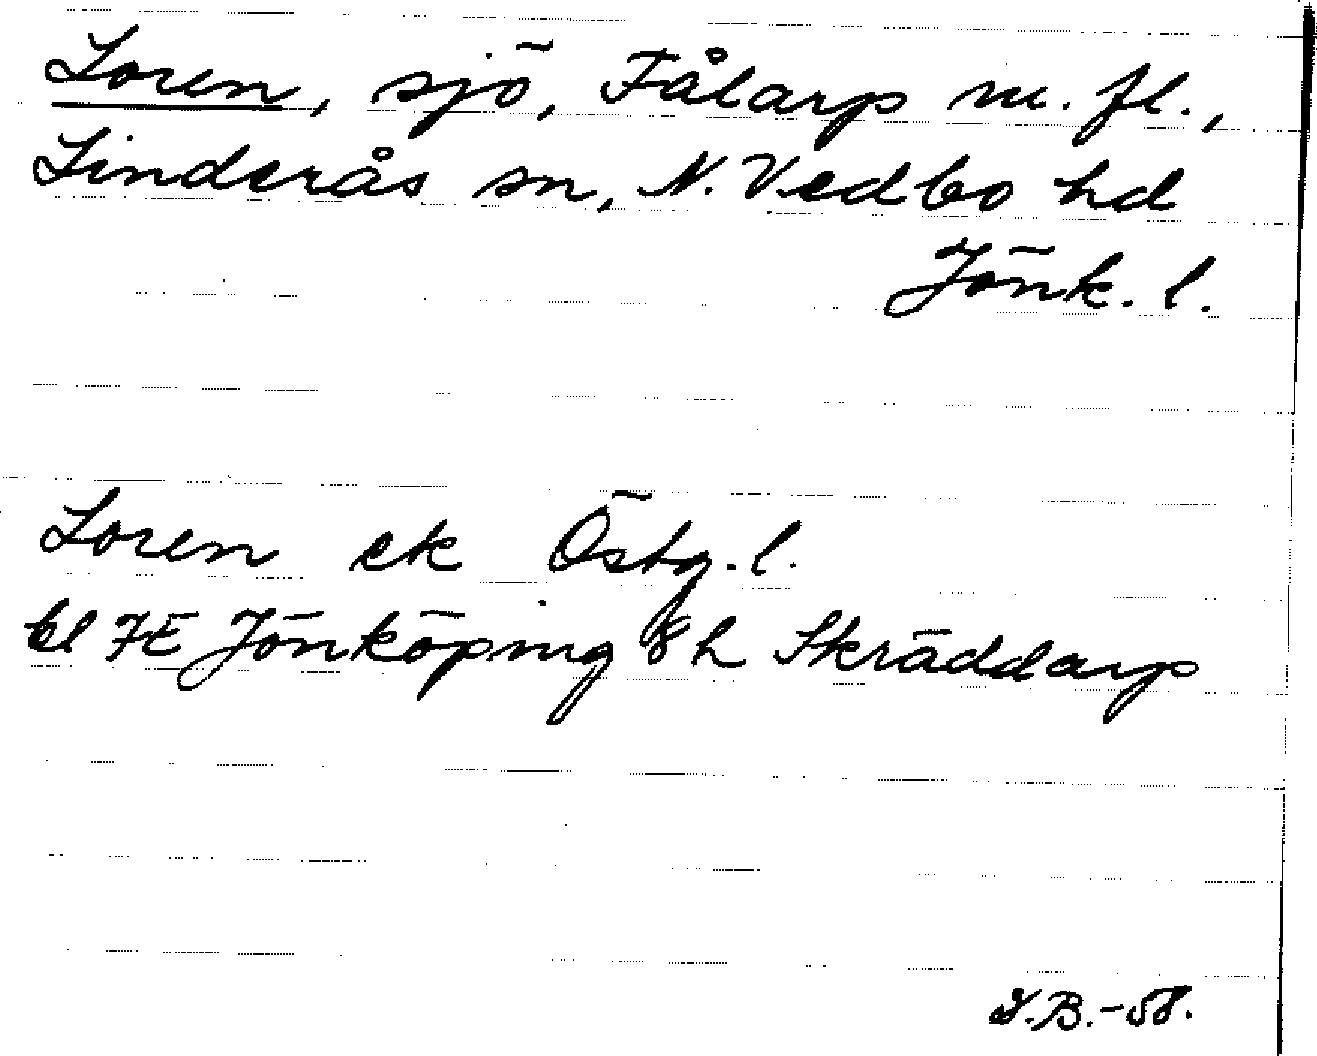 Loren, sjö, Fålarp m. fl.,
Linderås sn, N. Vedbo hd
Jönk. l.
Loren ek Östg. l.
bl 7E Jönköping 8h Skräddarp
I.B.-58.